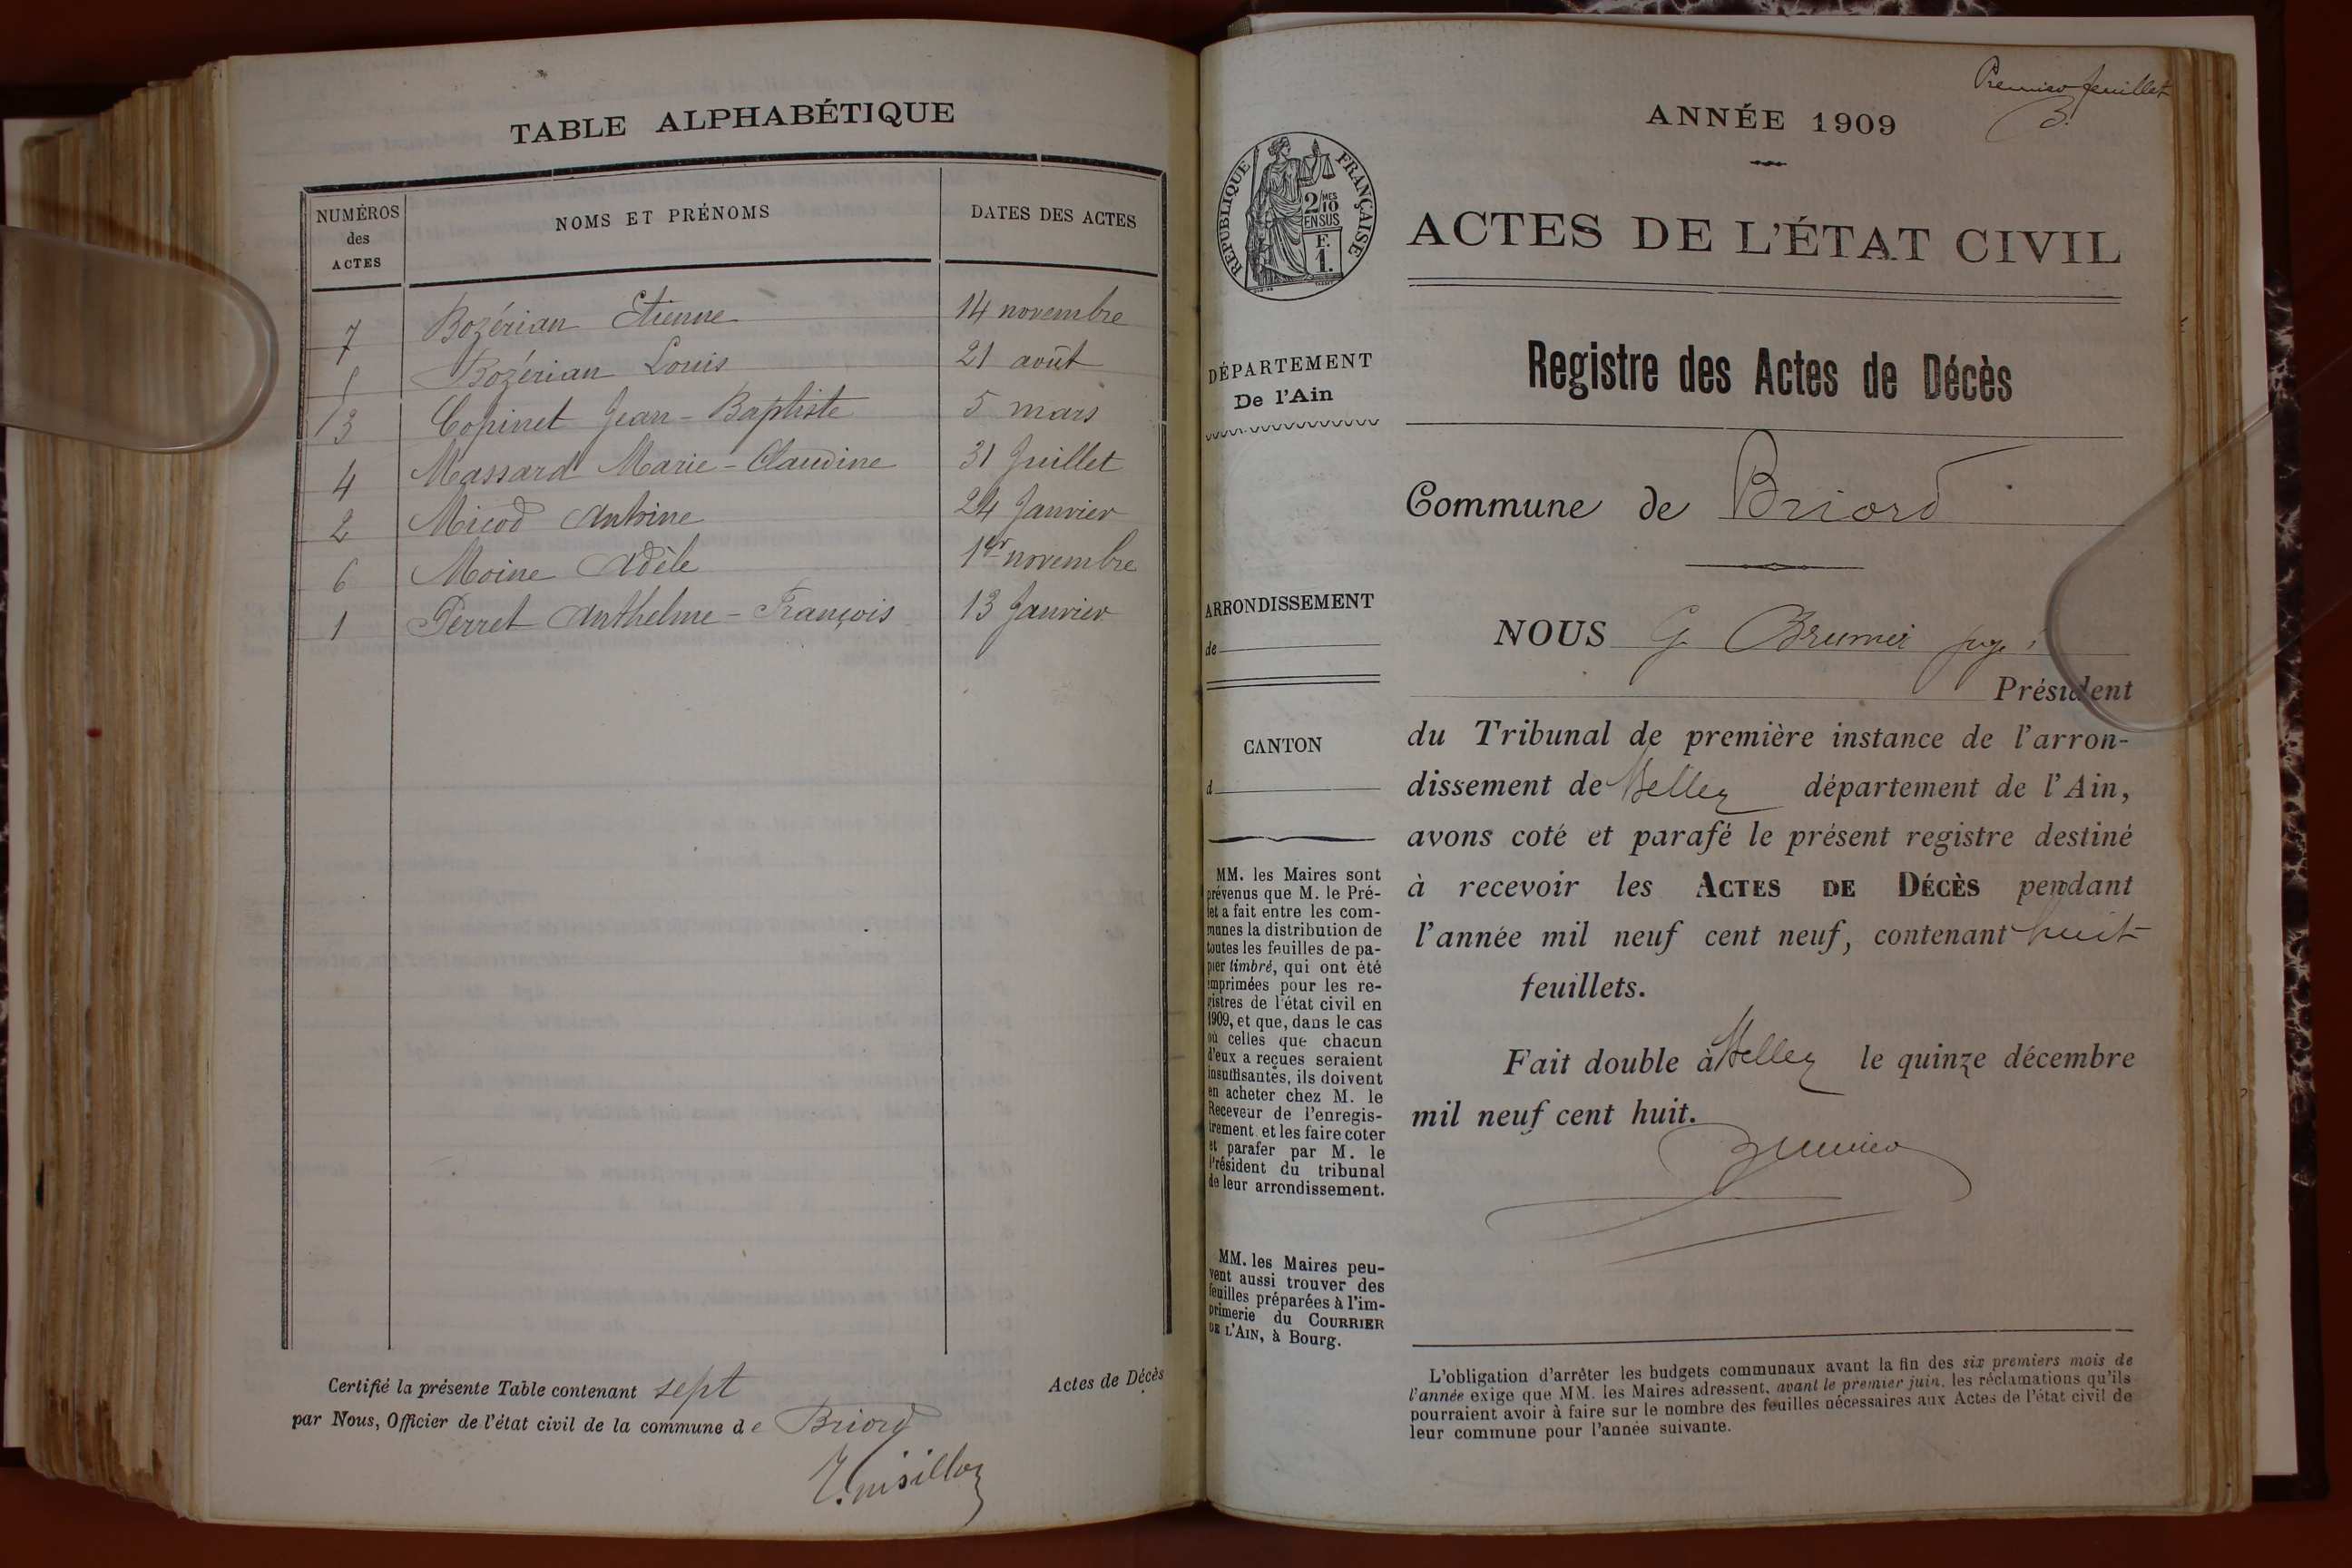 TABLE ALPHABÉTIQUE
NUMÉROS des ACTES
NOMS ET PRÉNOMS
DATES DES ACTES
7 Bozérian Etienne 14 novembre
Bozérian Louis 21 août
3 Copinet Jean-Baptiste 5 mars
4 Massard Marie-Claudine 31 Juillet
2 Micod Antoine 24 Janvier
6 Moine Adèle 1er novembre
1 Perret Anthelme-François 13 Janvier
Certifié la présente Table contenant sept
Actes de Décès
par Nous, Officier de l'état civil de la commune de Briord
Premier feuillet
B.
ANNÉE 1909
RÉPUBLIQUE FRANÇAISE
2/10 MES
EN SUS
F.
1.
ACTES DE L'ÉTAT CIVIL
DÉPARTEMENT
De l'Ain
Registre des Actes de Décès
Commune de Briord
ARRONDISSEMENT
de
NOUS G Brunier juge
Président
CANTON
d
du Tribunal de première instance de l'arron-
dissement de Belley département de l'Ain,
avons coté et parafé le présent registre destiné
à recevoir les ACTES DE DÉCÈS pendant
l'année mil neuf cent neuf, contenant huit
feuillets.
Fait double à Belley le quinze décembre
mil neuf cent huit.
Brunier
MM. les Maires sont
prévenus que M. le Pré-
fet a fait entre les com-
munes la distribution de
toutes les feuilles de pa-
pier timbré, qui ont été
imprimées pour les re-
gistres de l'état civil en
1909, et que, dans le cas
où celles que chacun
d'eux a reçues seraient
insuffisantes, ils doivent
en acheter chez M. le
Receveur de l'enregis-
trement et les faire coter
et parafer par M. le
Président du tribunal
de leur arrondissement.
MM. les Maires peu-
vent aussi trouver des
feuilles préparées à l'im-
primerie du COURRIER
DE L'AIN, à Bourg.
L'obligation d'arrêter les budgets communaux avant la fin des six premiers mois de
l'année exige que MM. les Maires adressent, avant le premier juin, les réclamations qu'ils
pourraient avoir à faire sur le nombre des feuilles nécessaires aux Actes de l'état civil de
leur commune pour l'année suivante.